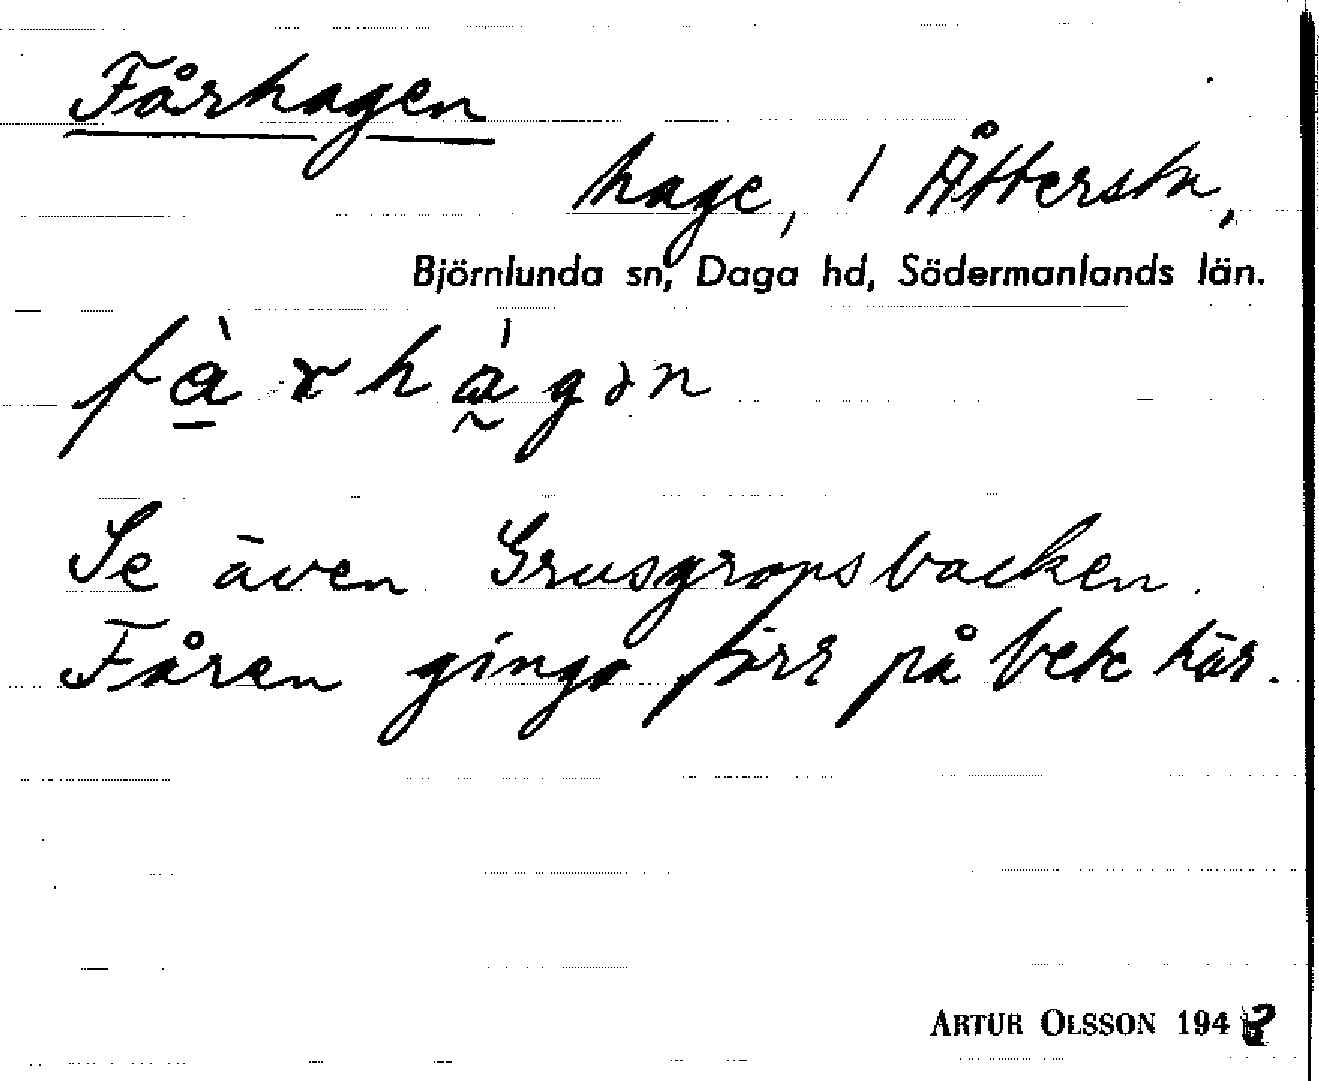 Fårhagen
hage, 1 Åttersta,
Björnlunda sn, Daga hd, Södermanlands län.
fà̱rhá̰gən
Se även Grusgropsbacken.
Fåren gingo förr på bete här.
ARTUR OLSSON 194